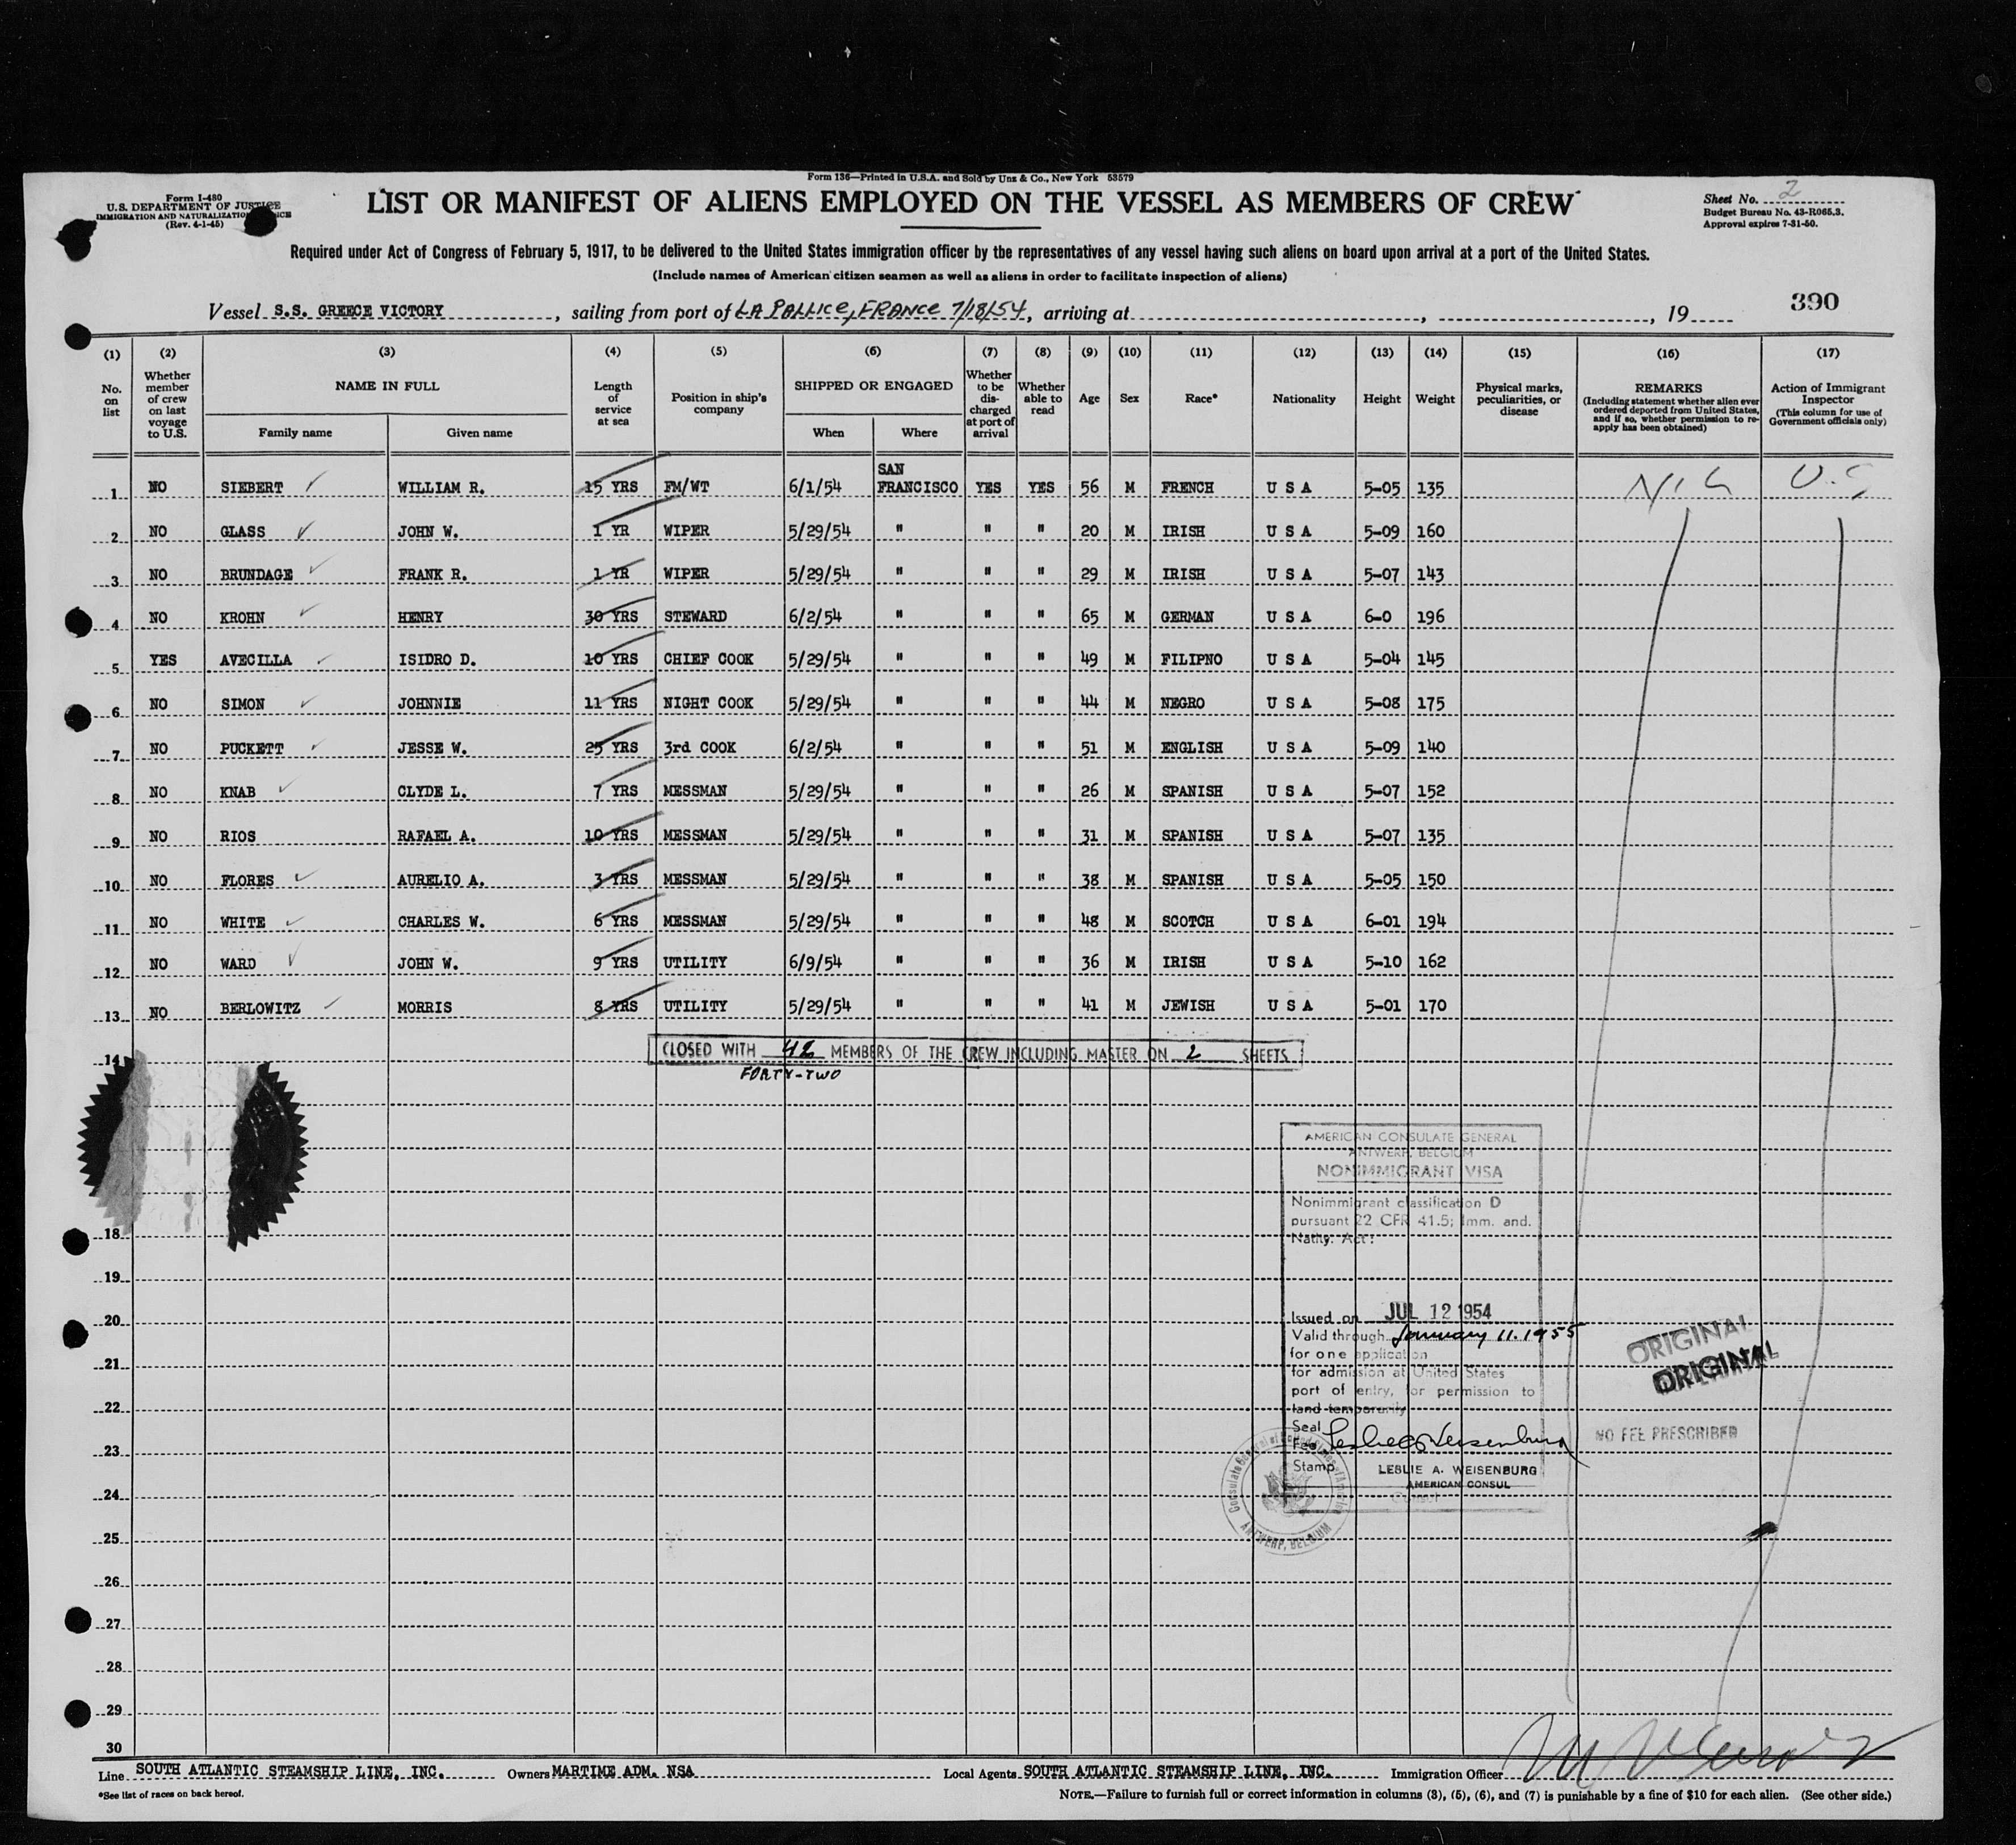 Form 136—Printed in U.S.A. and Sold by Unz & Co., New York 53579
Form I-480
U.S. DEPARTMENT OF JUSTICE
IMMIGRATION AND NATURALIZATION SERVICE
(Rev. 4-1-45)
LIST OR MANIFEST OF ALIENS EMPLOYED ON THE VESSEL AS MEMBERS OF CREW
Sheet No. 2
Budget Bureau No. 43-R065.3.
Approval expires 7-31-50.
Required under Act of Congress of February 5, 1917, to be delivered to the United States immigration officer by the representatives of any vessel having such aliens on board upon arrival at a port of the United States.
(Include names of American citizen seamen as well as aliens in order to facilitate inspection of aliens)
Vessel S.S. GREECE VICTORY, sailing from port of LA PALLICE, FRANCE 7/18/54, arriving at , , 19
390
(1) (2) (3) (4) (5) (6) (7) (8) (9) (10) (11) (12) (13) (14) (15) (16) (17)
No. on list
Whether member of crew on last voyage to U.S.
NAME IN FULL
Family name
Given name
Length of service at sea
Position in ship's company
SHIPPED OR ENGAGED
When
Where
Whether to be discharged at port of arrival
Whether able to read
Age
Sex
Race*
Nationality
Height
Weight
Physical marks, peculiarities, or disease
REMARKS
(Including statement whether alien ever ordered deported from United States, and if so, whether permission to re-apply has been obtained)
Action of Immigrant Inspector
(This column for use of Government officials only)
1 NO SIEBERT WILLIAM R. 15 YRS FM/WT 6/1/54 SAN FRANCISCO YES YES 56 M FRENCH U S A 5-05 135 U.S
2 NO GLASS JOHN W. 1 YR WIPER 5/29/54 " " " 20 M IRISH U S A 5-09 160
3 NO BRUNDAGE FRANK R. 1 YR WIPER 5/29/54 " " " 29 M IRISH U S A 5-07 143
4 NO KROHN HENRY 30 YRS STEWARD 6/2/54 " " " 65 M GERMAN U S A 6-0 196
5 YES AVECILLA ISIDRO D. 10 YRS CHIEF COOK 5/29/54 " " " 49 M FILIPNO U S A 5-04 145
6 NO SIMON JOHNNIE 11 YRS NIGHT COOK 5/29/54 " " " 44 M NEGRO U S A 5-08 175
7 NO PUCKETT JESSE W. 25 YRS 3rd COOK 6/2/54 " " " 51 M ENGLISH U S A 5-09 140
8 NO KNAB CLYDE L. 7 YRS MESSMAN 5/29/54 " " " 26 M SPANISH U S A 5-07 152
9 NO RIOS RAFAEL A. 10 YRS MESSMAN 5/29/54 " " " 31 M SPANISH U S A 5-07 135
10 NO FLORES AURELIO A. 3 YRS MESSMAN 5/29/54 " " " 38 M SPANISH U S A 5-05 150
11 NO WHITE CHARLES W. 6 YRS MESSMAN 5/29/54 " " " 48 M SCOTCH U S A 6-01 194
12 NO WARD JOHN W. 9 YRS UTILITY 6/9/54 " " " 36 M IRISH U S A 5-10 162
13 NO BERLOWITZ MORRIS 8 YRS UTILITY 5/29/54 " " " 41 M JEWISH U S A 5-01 170
14
CLOSED WITH 42 MEMBERS OF THE CREW INCLUDING MASTER ON 2 SHEETS
FORTY-TWO
AMERICAN CONSULATE GENERAL
ANTWERP, BELGIUM
NONIMMIGRANT VISA
Nonimmigrant classification D
pursuant 22 CFR 41.5; Imm. and.
Natity. Act.
18
19
Issued on JUL 12 1954
20
Valid through January 11. 1955
for one application
21
for admission at United States
port of entry, for permission to
22
land temporarily
Seal
Fee
23
Stamp
LESLIE A. WEISENBURG
AMERICAN CONSUL
Consul
24
Consulate General of the United States of America
ANTWERP, BELGIUM
ORIGINAL
ORIGINAL
NO FEE PRESCRIBED
25
26
27
28
29
30
Line SOUTH ATLANTIC STEAMSHIP LINE, INC. Owners MARTIME ADM. NSA Local Agents SOUTH ATLANTIC STEAMSHIP LINE, INC. Immigration Officer
*See list of races on back hereof.
NOTE.—Failure to furnish full or correct information in columns (3), (5), (6), and (7) is punishable by a fine of $10 for each alien. (See other side.)